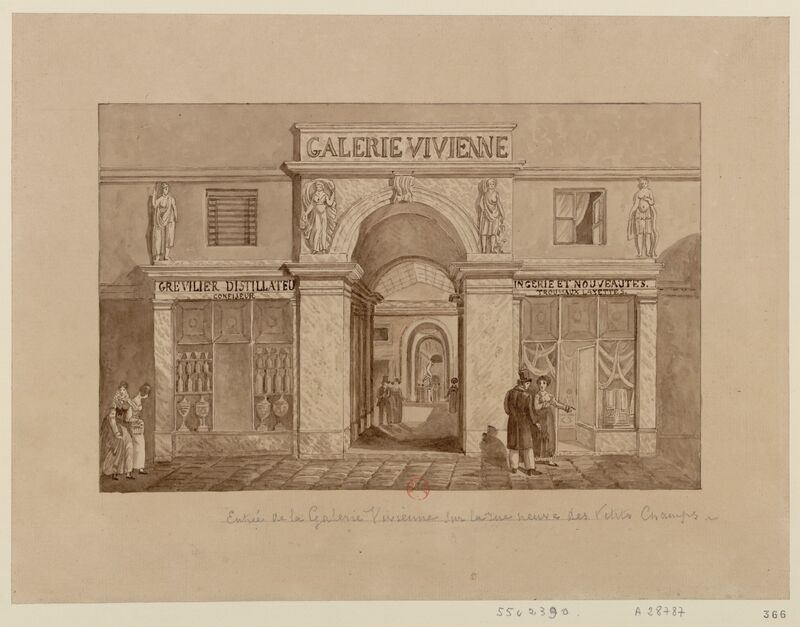 GALERIE VIVIENNE
GREVILIER DISTILLATEU
CONFISEUR
INGERIE ET NOUVEAUTES.
TROUSSAUX LAYETTES.
Entrée de la Galerie Vivienne sur la rue neuve des Petits Champs
5502390.
A 28787
366